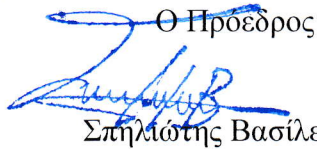 Ο Πρόεδρος
Σπηλιώτης Βασίλε